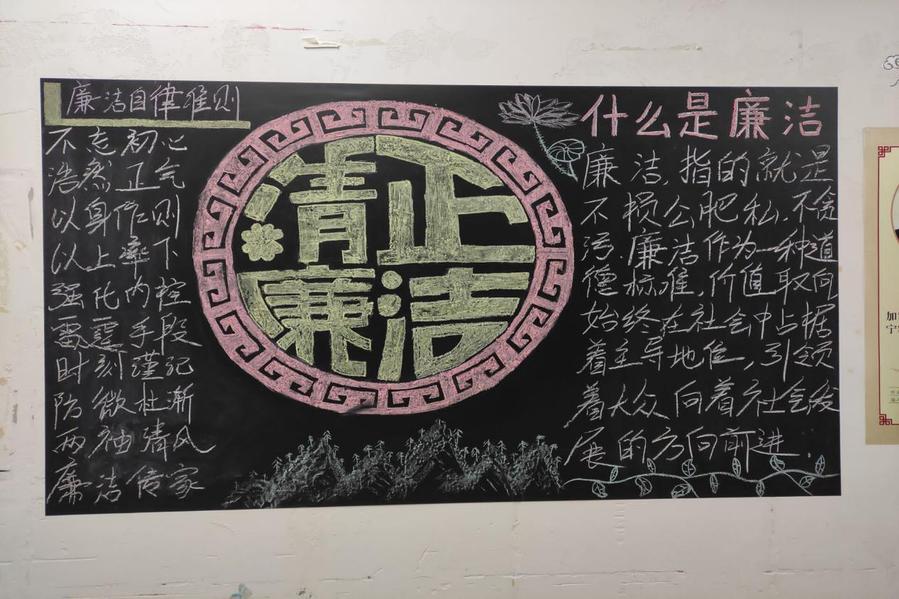 廉洁自律准则
不忘初心
浩然正气
以身作则
以上率下
强化内控
雷霆手段
时刻谨记
防微杜渐
两袖清风
廉洁传家
清正
廉洁
什么是廉洁
廉洁,指的就是
不损公肥私,不贪
污,廉洁作为一种道
德标准,价值取向
始终在社会中占据
着主导地位,引领
着大众向着社会发
展的方向前进.